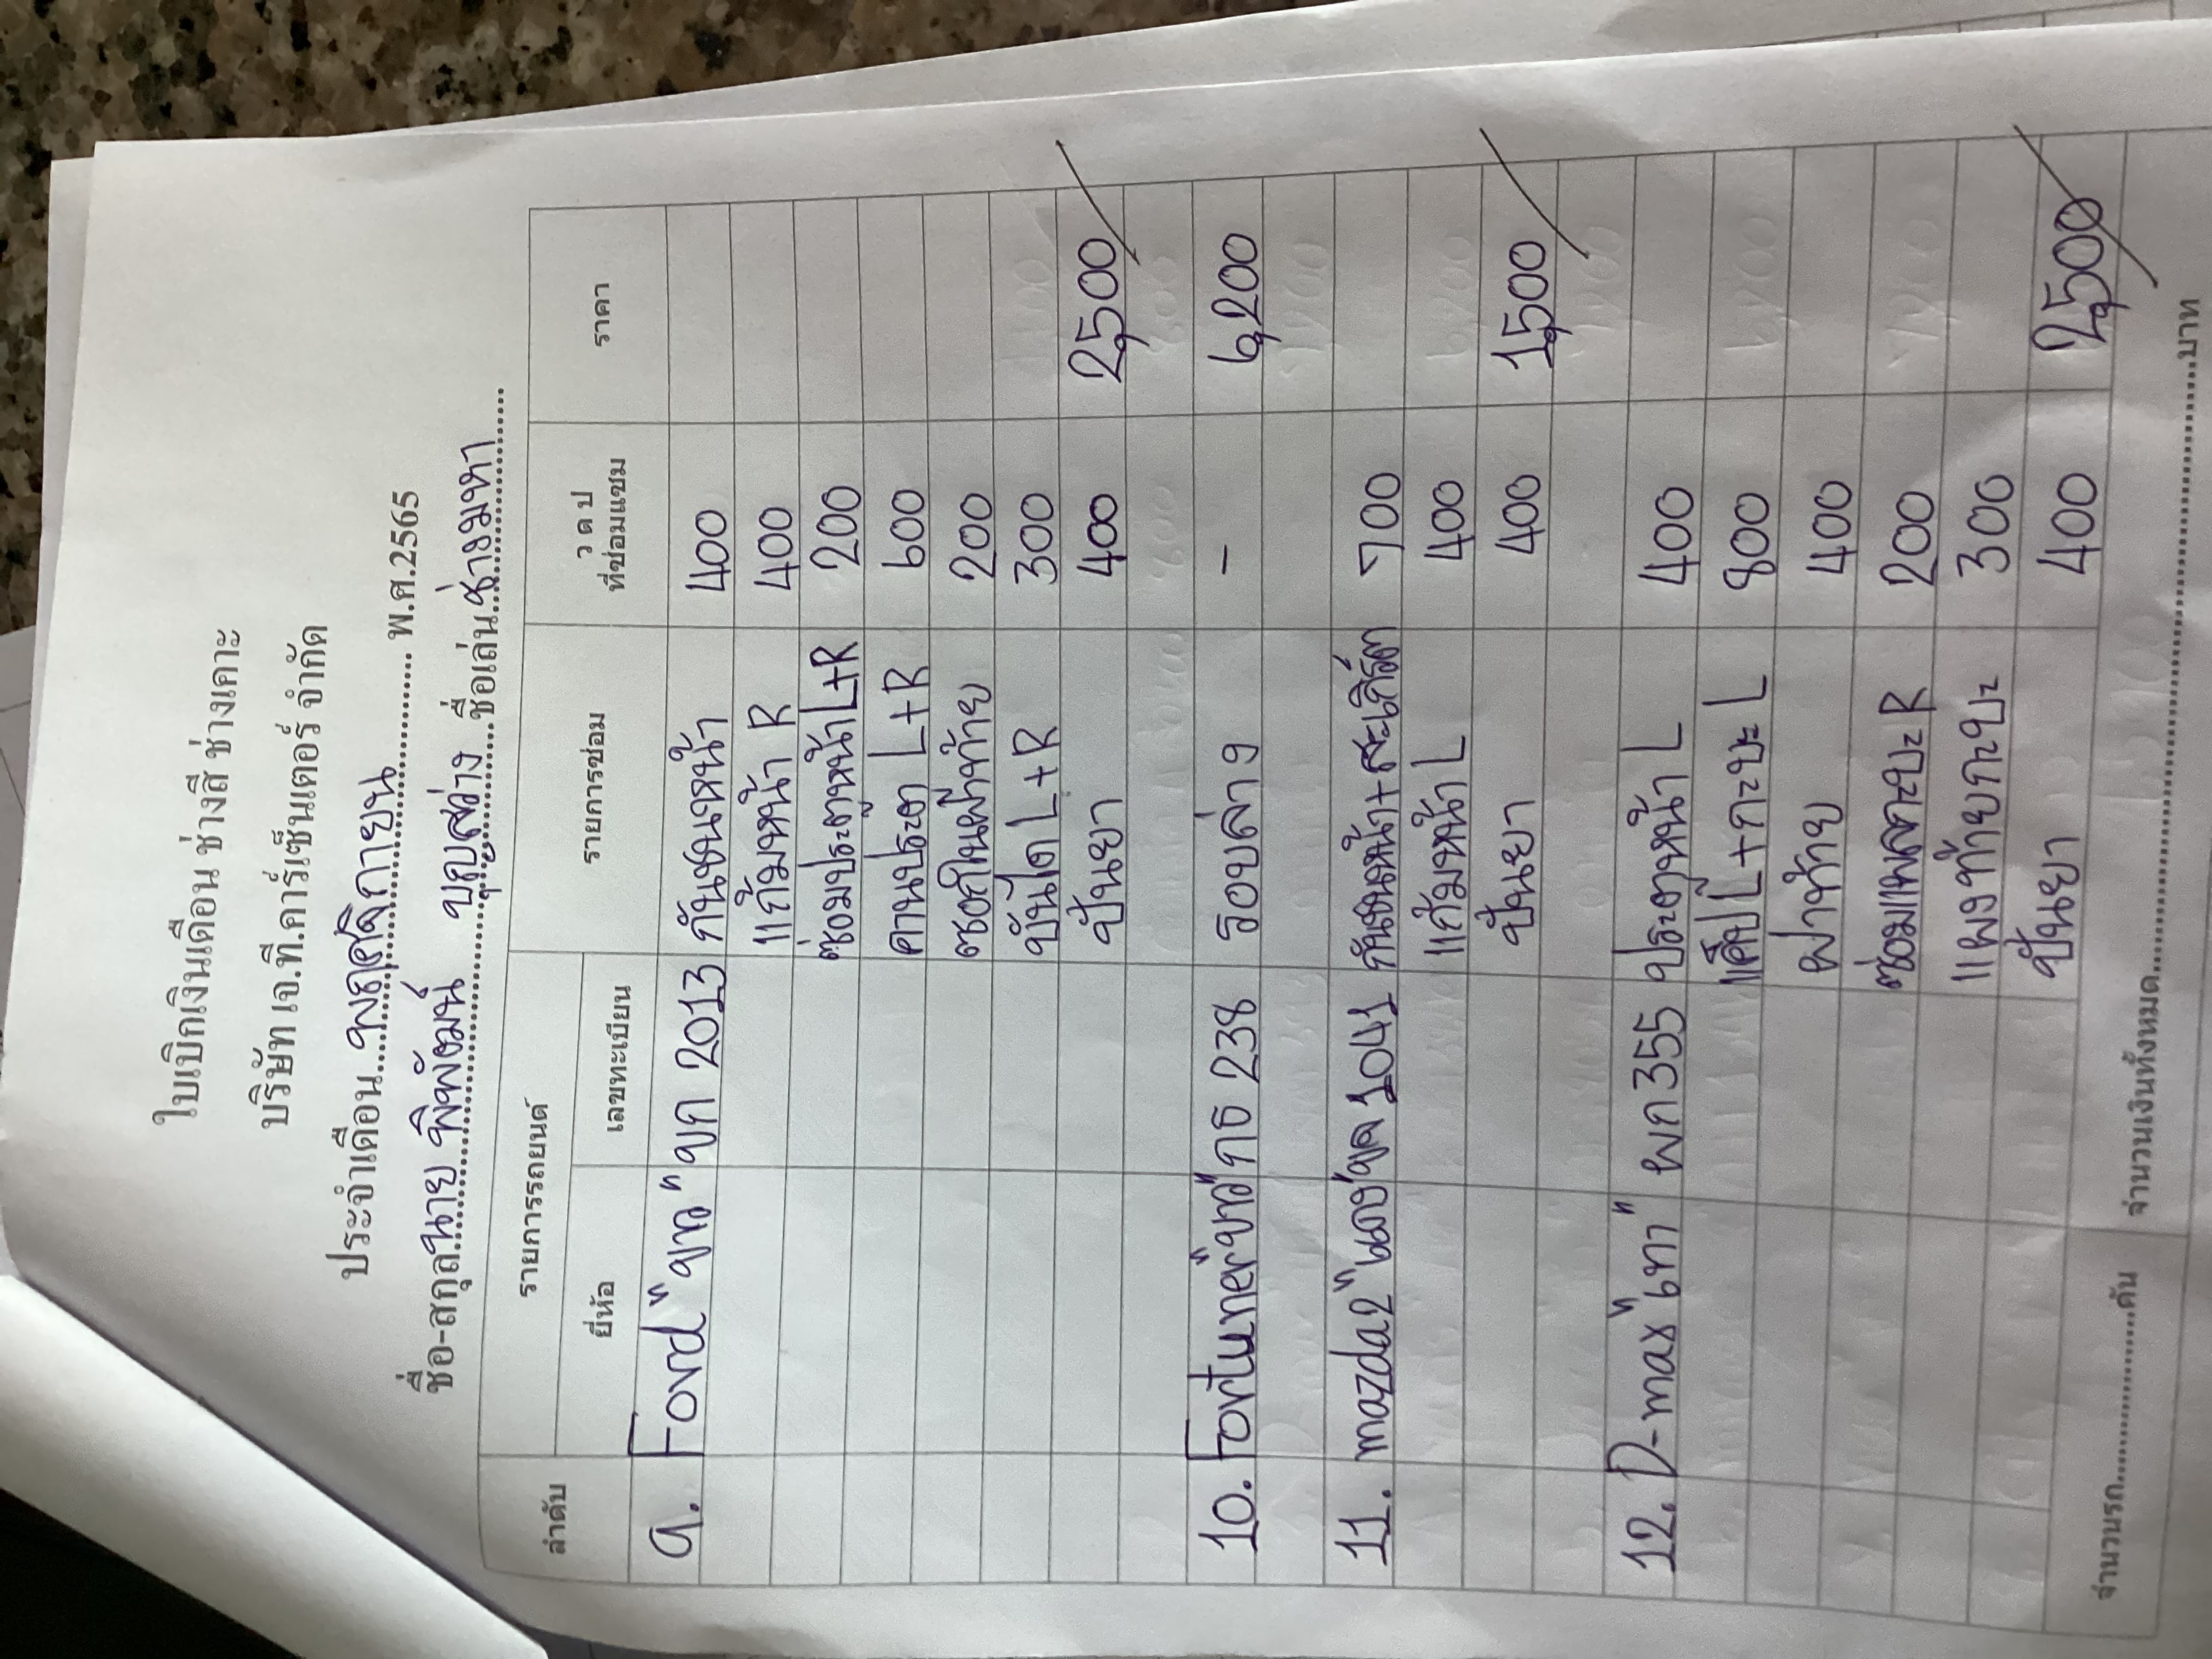 ใบเบิกเงินเดือน ช่างสี ช่างเคาะ
บริษัท เจ.ที.คาร์เซ็นเตอร์ จำกัด
ประจำเดือน...พฤศจิกายน............ พ.ศ.2565
ชื่อ-สกุล นาย พิพัฒน์ บุญสว่าง ชื่อเล่น ช่างมหา
ลำดับ รายการรถยนต์ รายการซ่อม ว ด ป ที่ซ่อมแซม ราคา
ยี่ห้อ เลขทะเบียน
9. Ford "ขาว" ขก 2013 กันชนหน้า 400
แก้มหน้า R 400
ซ่อมประตูหน้า L+R 200
คานประตู L+R 600
ซอกในฝาท้าย 200
บันได L+R 300
ปั่นยา 400 2,500
10. Fortuner "ขาว" กธ 238 รอบล่าง - 6,200
11. mazda2 "แดง" ขล 1041 กันชนหน้า+สะเกิร์ต 700
แก้มหน้า L 400
ปั่นยา 400 1,500
12. D-max "เทา" ผก 355 ประตูหน้า L 400
แค็ป L+กะบะ L 800
ฝาท้าย 400
ซ่อมแผลกะบะ R 200
แผงท้ายกะบะ 300
ปั่นยา 400 2,500
จำนวนรถ....................คัน จำนวนเงินทั้งหมด....................บาท